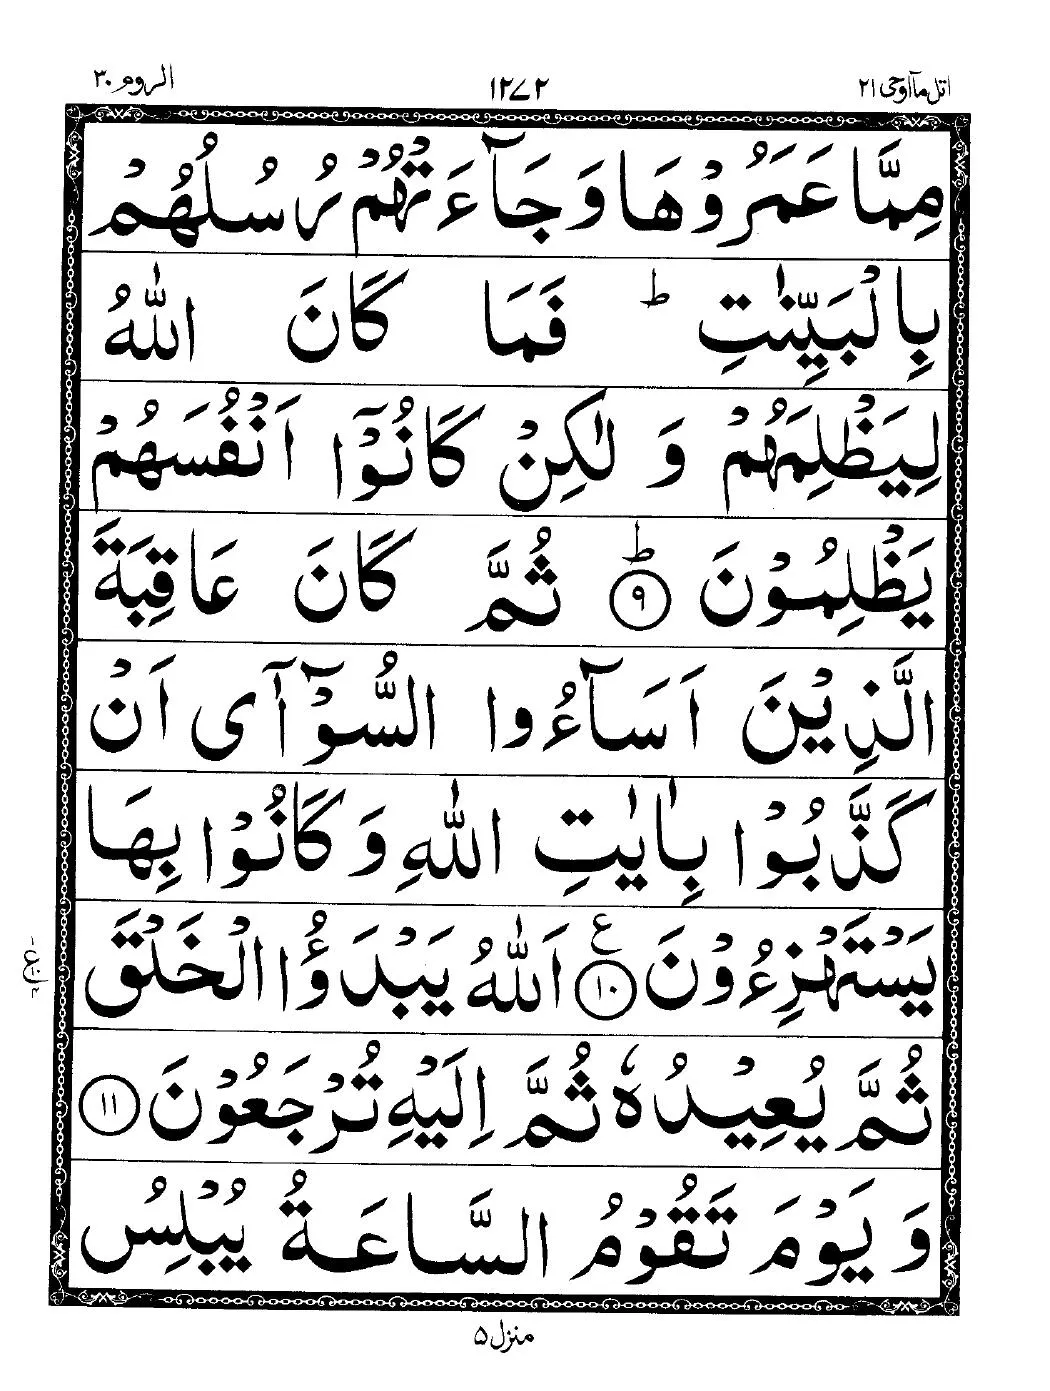 اتل مآ اوحی ۲۱
۱۲۷۲
الروم ۳۰
مِمَّا عَمَرُوْهَا وَ جَآءَتْهُمْ رُسُلُهُمْ
بِالْبَیِّنٰتِ ؕ فَمَا كَانَ اللّٰهُ
لِیَظْلِمَهُمْ وَ لٰكِنْ كَانُوْۤا اَنْفُسَهُمْ
یَظْلِمُوْنَ ؕ﴿۹﴾ ثُمَّ كَانَ عَاقِبَةَ
الَّذِیْنَ اَسَآءُوا السُّوْٓاٰۤی اَنْ
كَذَّبُوْا بِاٰیٰتِ اللّٰهِ وَ كَانُوْا بِهَا
یَسْتَهْزِءُوْنَ ﴿۱۰﴾ ع اَللّٰهُ یَبْدَؤُا الْخَلْقَ
ثُمَّ یُعِیْدُهٗ ثُمَّ اِلَیْهِ تُرْجَعُوْنَ ﴿۱۱﴾
وَ یَوْمَ تَقُوْمُ السَّاعَةُ یُبْلِسُ
منزل ۵